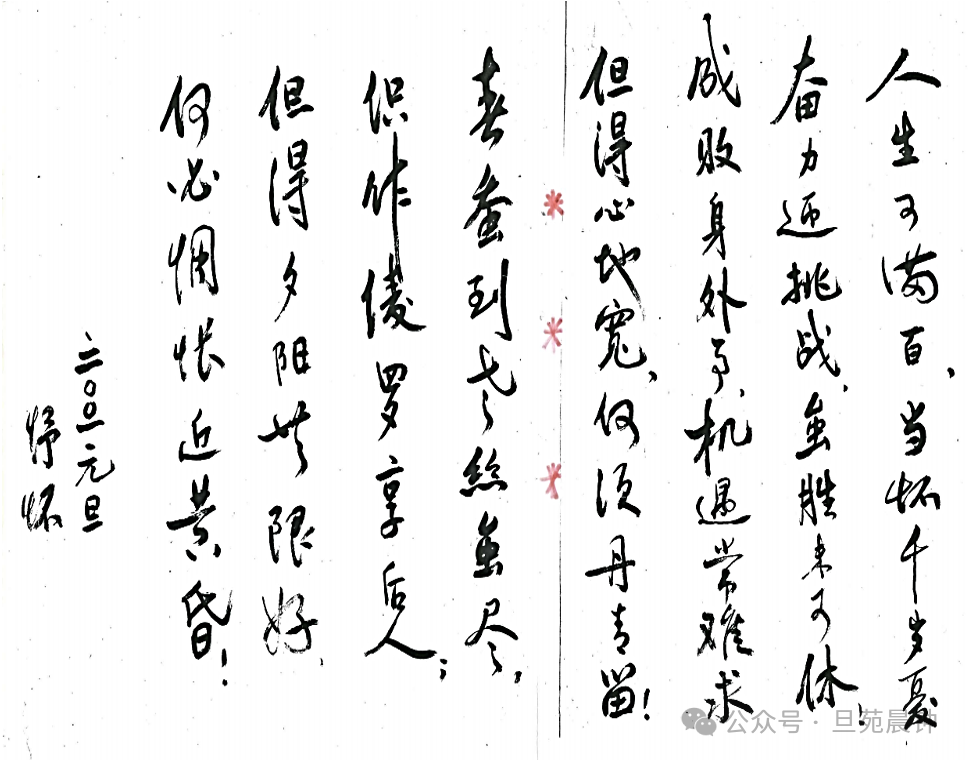 人生可满百,当怀千岁忧
奋力迎挑战,虽胜未可休!
成败身外事,机遇常难求
但得心地宽,何须丹青留!
春蚕到老絲虽尽,
织作绫罗享后人;
但得夕阳无限好,
何必惆怅近黄昏!
二〇〇一元旦
抒怀
公众号·旦苑晨钟